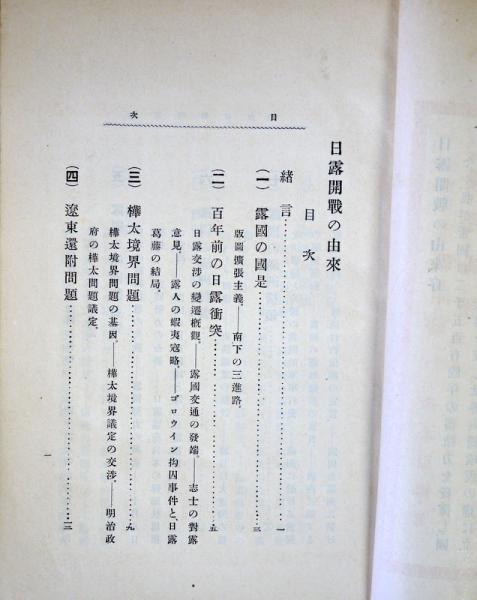 目次
日露開戰の由來
目次
緒言……………………一
(一) 露國の國是……………………三
版圖擴張主義。――南下の三進路。
(二) 百年前の日露衝突……………………五
日露交涉の變遷槪觀。――露國交通の發端。――志士の對露
意見。――露人の蝦夷寇略。――ゴロウイン拘囚事件と、日露
葛藤の結局。
(三) 樺太境界問題……………………九
樺太境界問題の基因。――樺太境界議定の交涉。――明治政
府の樺太問題議定。
(四) 遼東還附問題……………………三
一